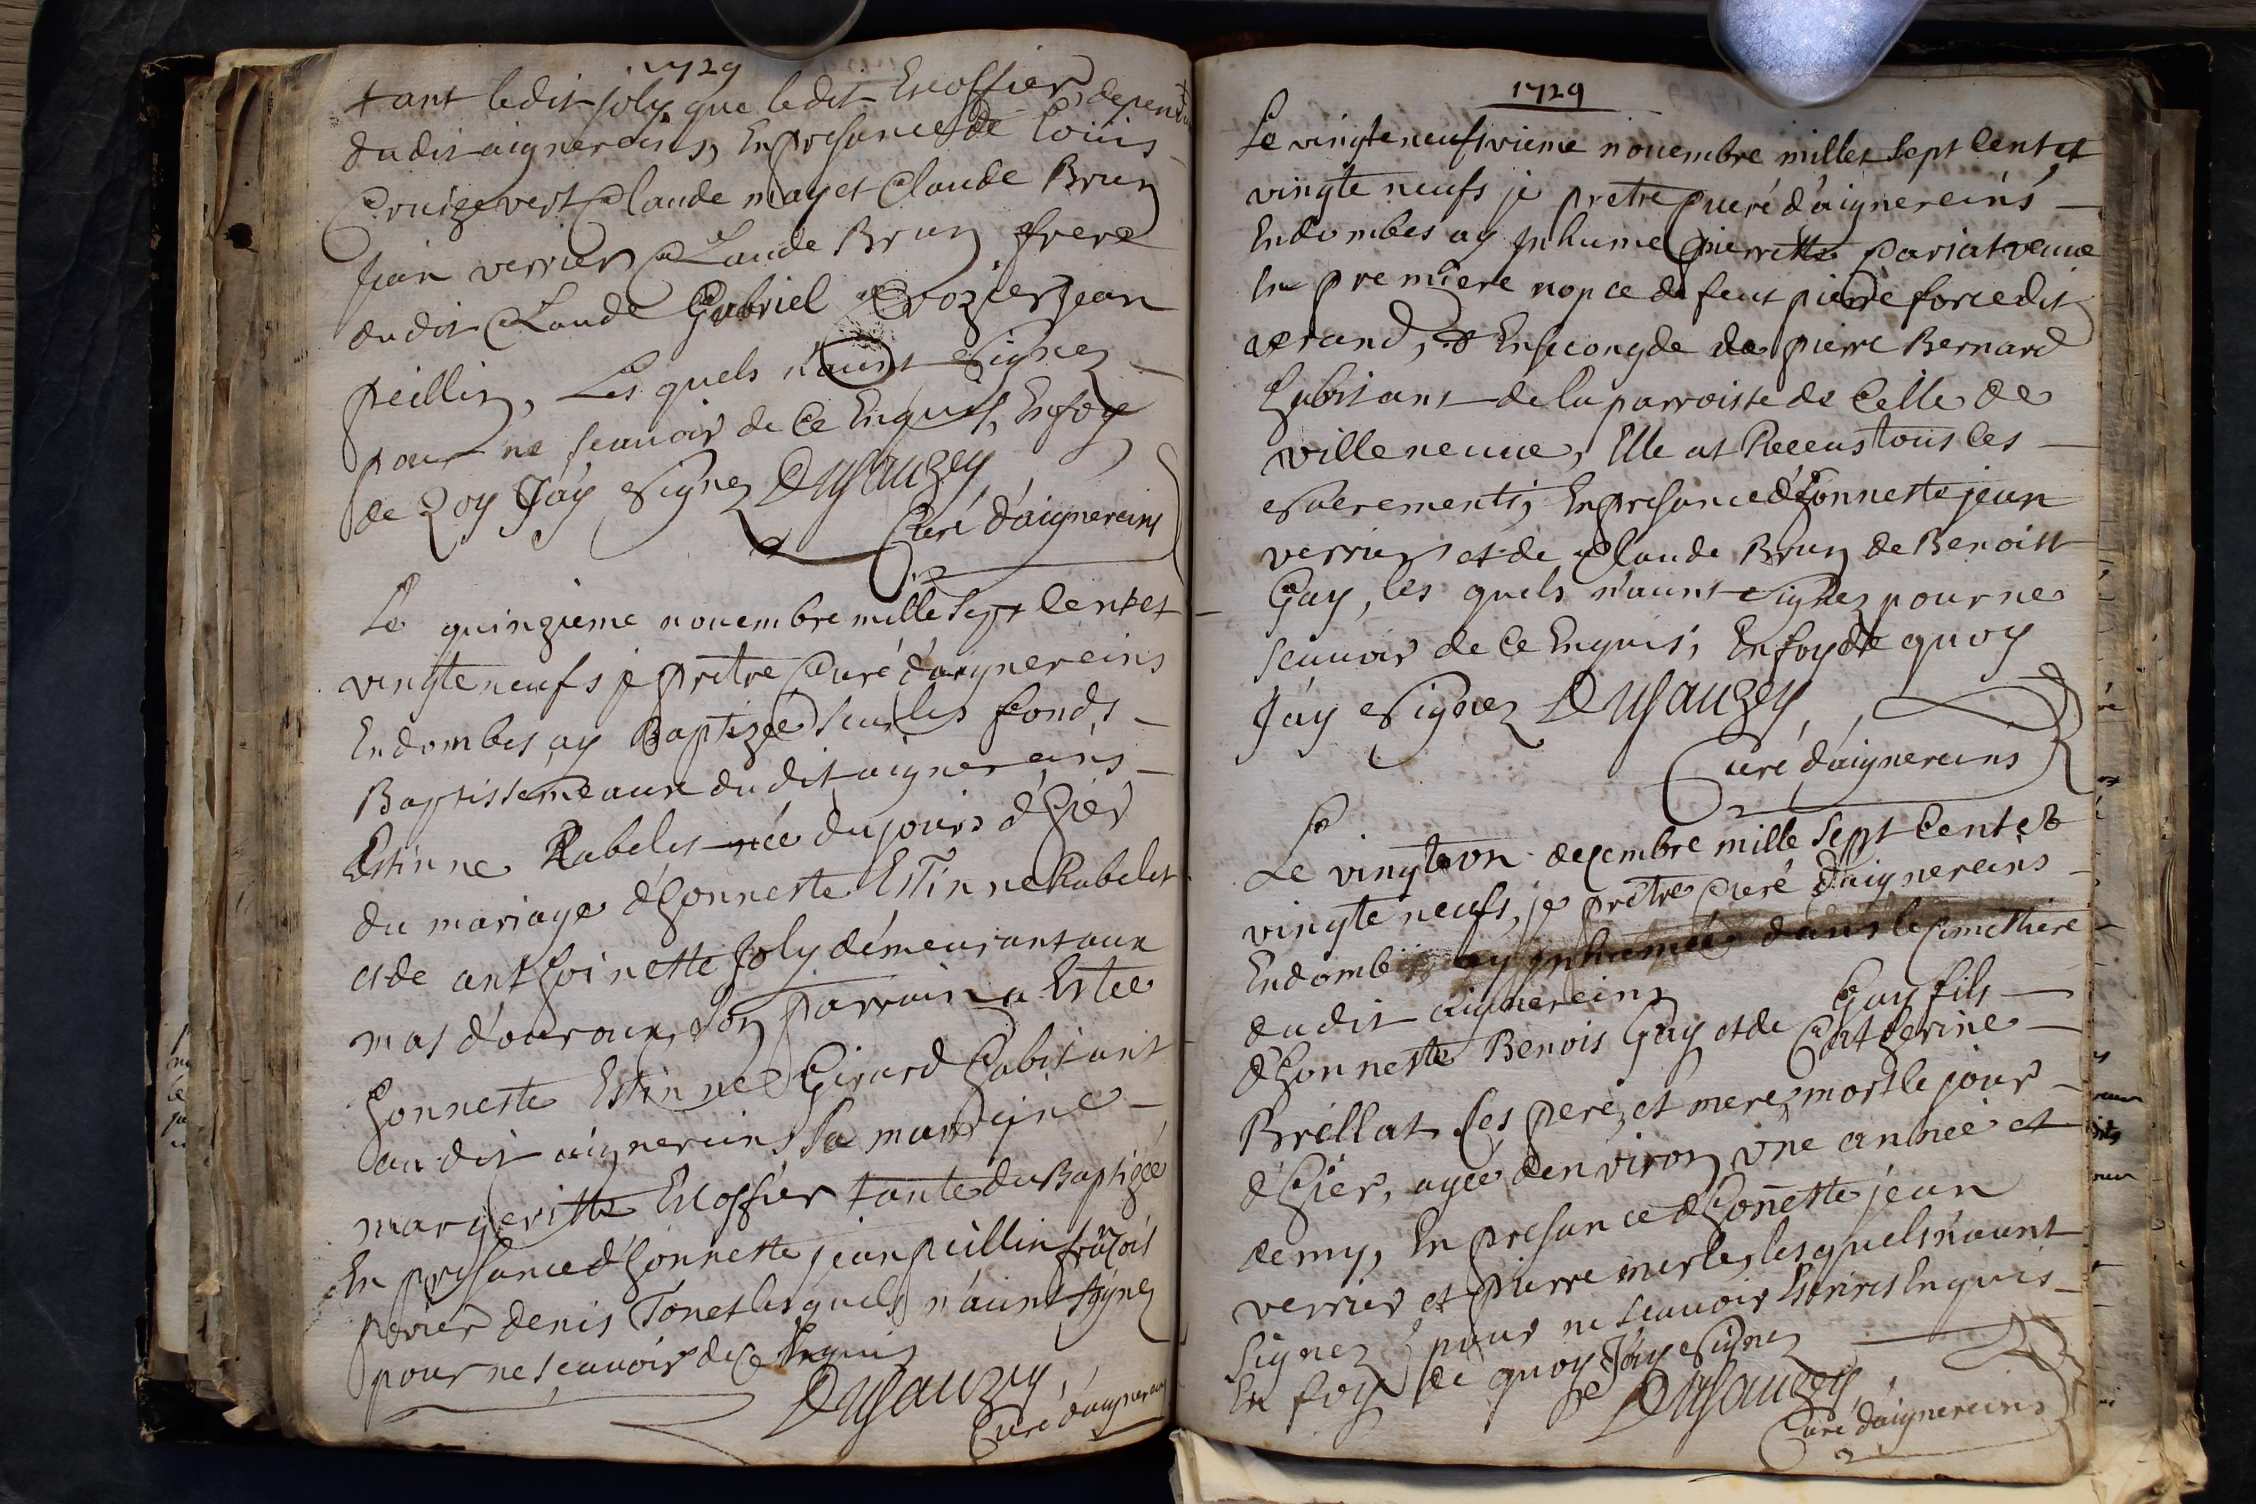 1729
tant ledit joly que ledit Escoffier dependant
dudit aignereins, En presance de Loüis
Cruizevert Claude may et Claude Brun
jean verrier Claude Brun frere
dudit Claude Gabriel Crozier jean
peillin, Les quels n'aunt Signez
pour ne scauoir de ce Enquis, En foy
de quoy J'ay Signez Dusauzey
Curé d'aignereins
Le quinzieme nouembre mille Sept Cent et
vingte neufs je prêtre Curé d'aignereins
En dombes ay Baptizée Seur les fonds
Baptissemeaux dudit aignereins
Estinne Rabelet née du jours d'hier
du mariage d'honneste Estinne Rabelet
et de anthoinette Joly démeurant aux
mas d'ouroux, Son parrain a Estée
honneste Estinne Girard habitant
audit aignereins Sa marreine
margeritte Escoffier tante du Baptizée
En presance d'honneste jean peillin frãcois
perier denis Tonet les quels n'aunt Signez
pour ne scauoir de ce Enquis
Dusauzey
Curé d'aignereins
1729
Le vingte neufsvieme nouembre milles Sept Cent et
vingte neufs je prêtre Cueré d'aignereins
En dombes ay Inhume pierrette pariat veuue
En premiere nopce de feut pierre force dit
verand, & En secongde de pierre Bernard
habitant de la parroisse de Celle de
ville neuue, Elle at Receus tous les
Sacrements, En presance d'honneste jean
verrier et de Claude Brun de Benoist
Gay, les quels n'aunt Signez pour ne
scauoir de Ce Enquis, En foy de quoy
J'ay Signez Dusauzey
Curé d'aignereins
Le vingte vn decembre mille Sept Cent et
vingte neufs, je prêtre Curé d'aignereins
En dombes ay Inhumée dans le Cimettiere
dudit aignereins Gay fils
d'honneste Benois Gay et de Catherine
Brellat Ses pere et mere mort le jour
d'hier, agée d'environ vne année et
demy, En presance d'honeste jean
verrier et pierre merle, les quels n'aunt
Signez pour ne scauoir Escrires Enquis
En foy de quoy J'ay Signez
Dusauzey
Curé d'aignereins